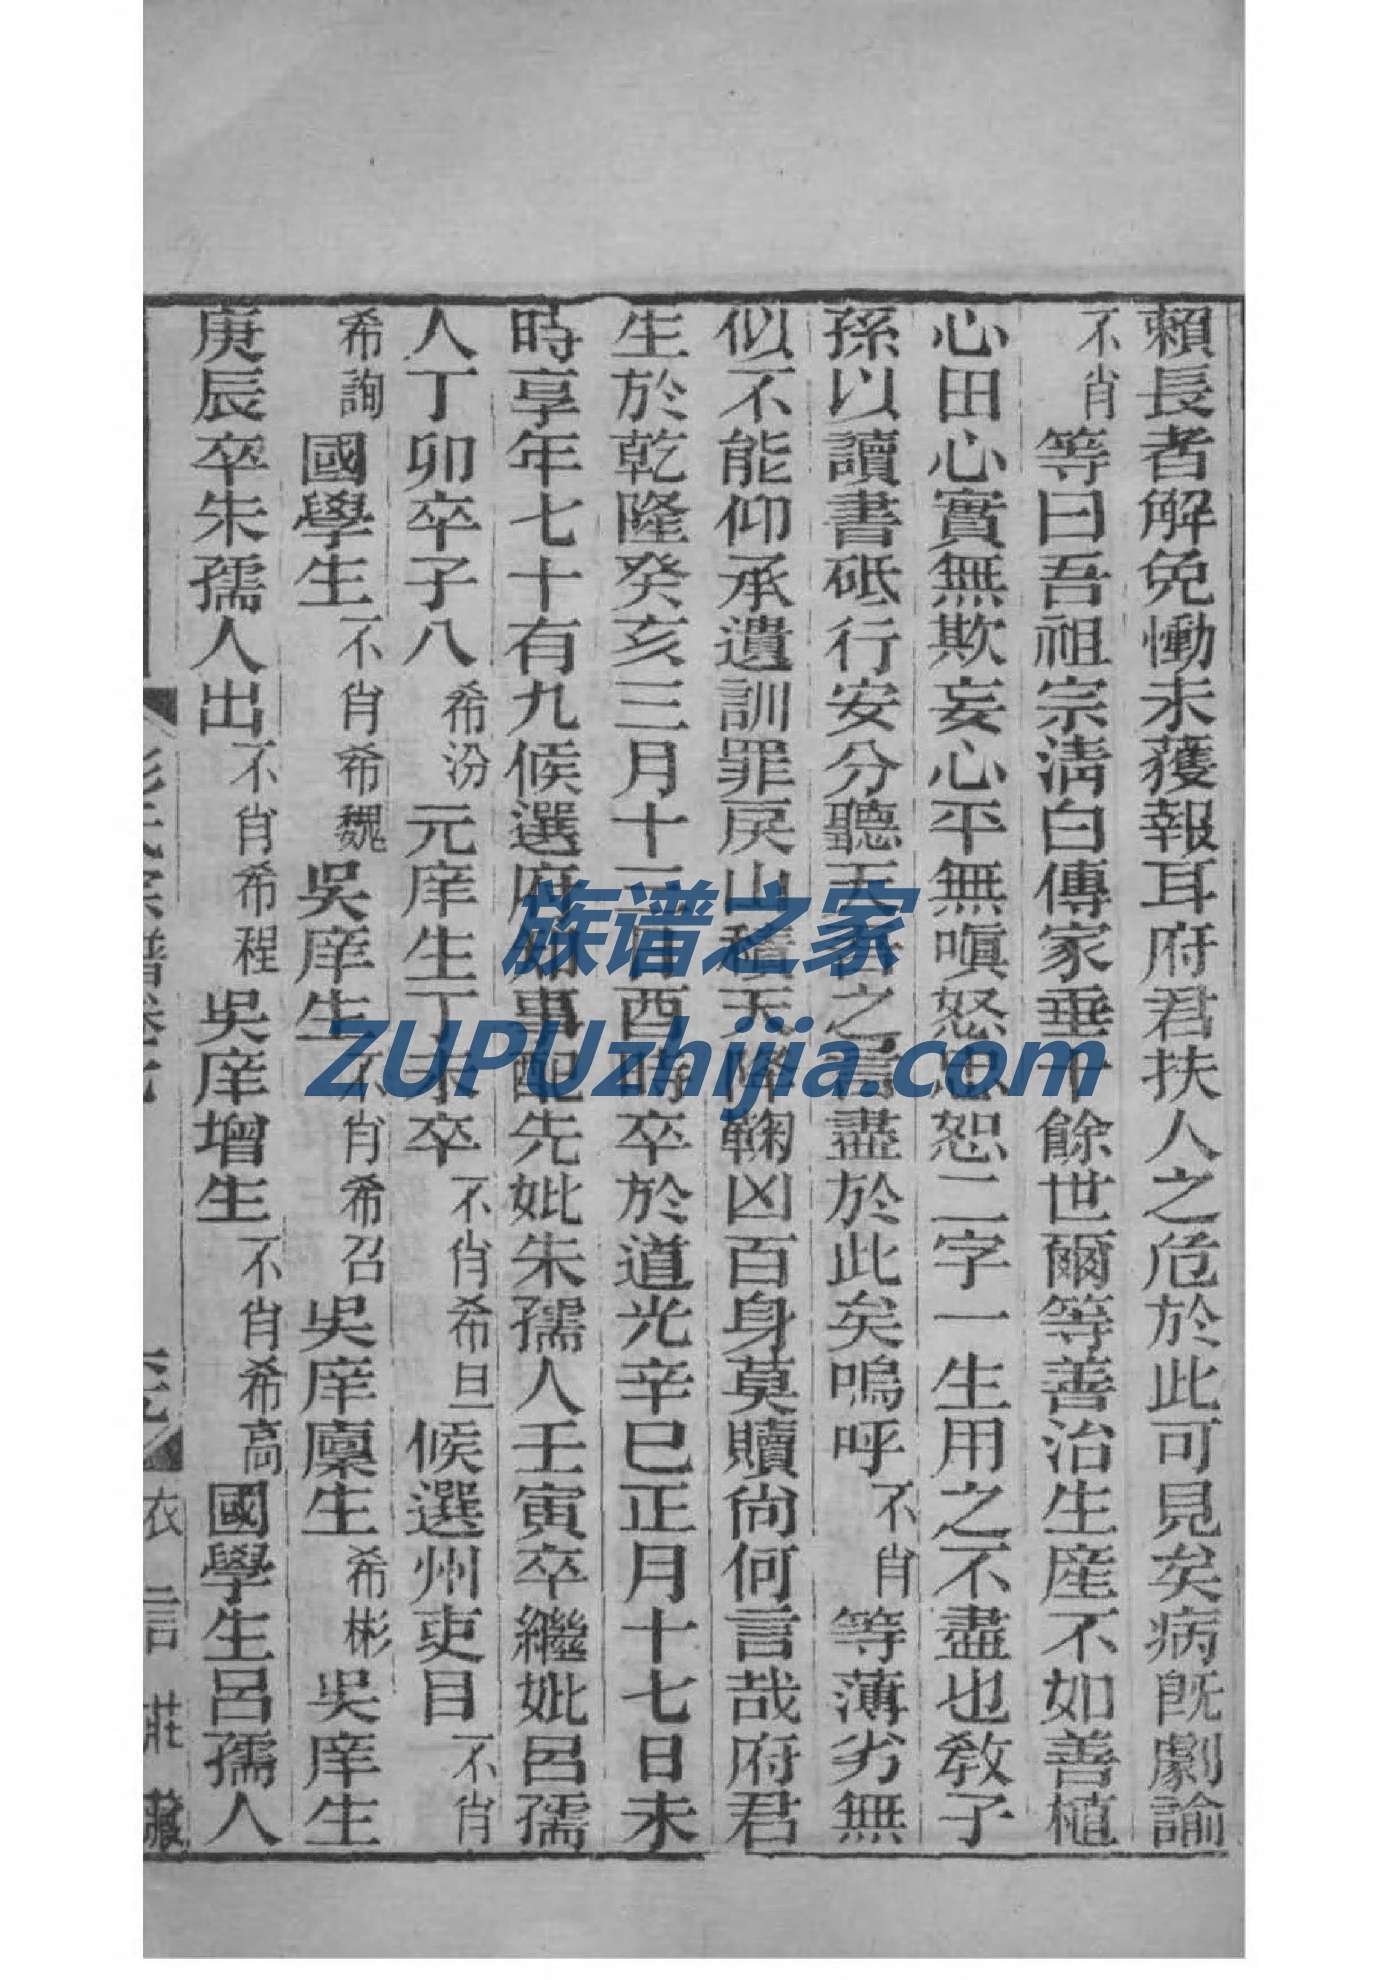 賴長者解免慟未獲報耳府君扶人之危於此可見矣病旣劇諭
不肖等曰吾祖宗淸白傳家垂十餘世爾等善治生產不如善植
心田心實無欺妄心平無嗔怒忠恕二字一生用之不盡也敎子
孫以讀書砥行安分聽天吾之言盡於此矣嗚呼不肖等薄劣無
似不能仰承遺訓罪戾山積天降鞠凶百身莫贖尙何言哉府君
生於乾隆癸亥三月十二日酉時卒於道光辛巳正月十七日未
時享年七十有九候選府知事配先妣朱孺人壬寅卒繼妣呂孺
人丁卯卒子八希汾元庠生丁未卒不肖希旦候選州吏目不肖
希詢國學生不肖希魏吳庠生不肖希召吳庠廩生希彬吳庠生
庚辰卒朱孺人出不肖希程吳庠增生不肖希高國學生呂孺人
彭氏宗譜卷七
衣言莊藏
族谱之家
ZUPUzhijia.com